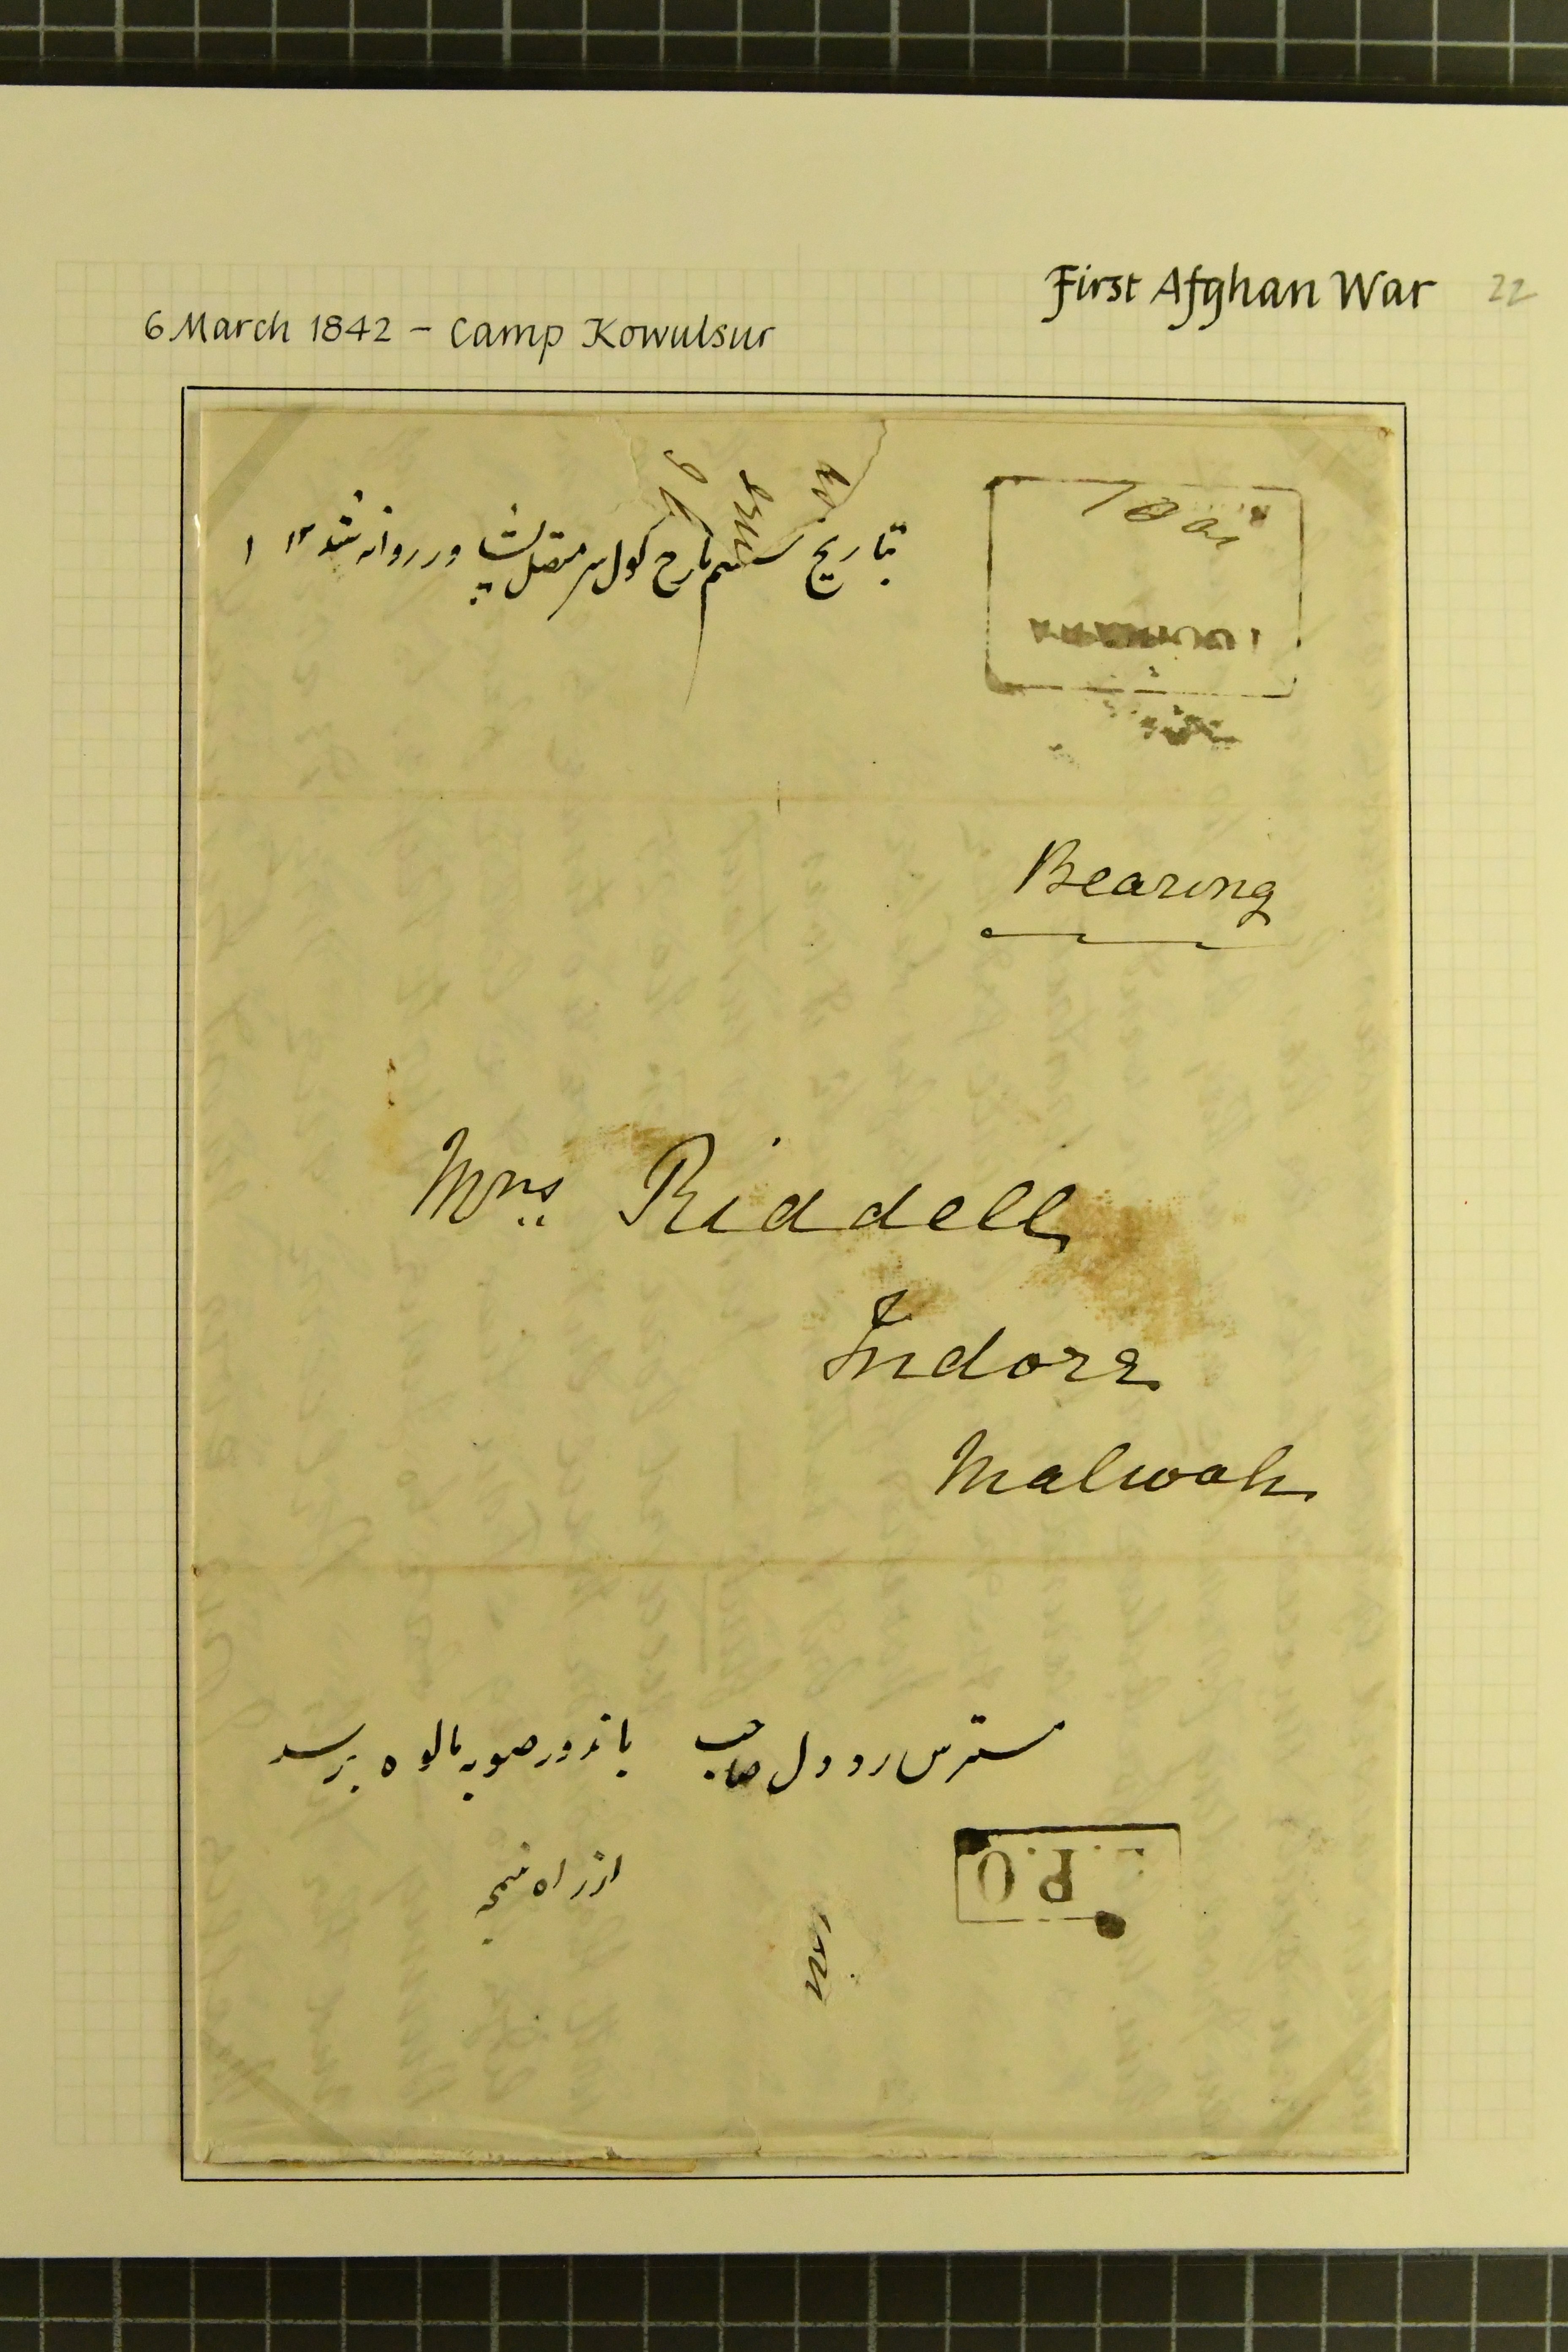 First Afghan War 22
6 March 1842 – Camp Kowulsur
بتاریخ ششم مارچ کول سر متصل پشاور روانه شد ۱۲
Bearing
Mrs Riddell
Indore
Malwah
مسترس ردول صاحب باندور صوبه مالوه برسد
از راه
P.O